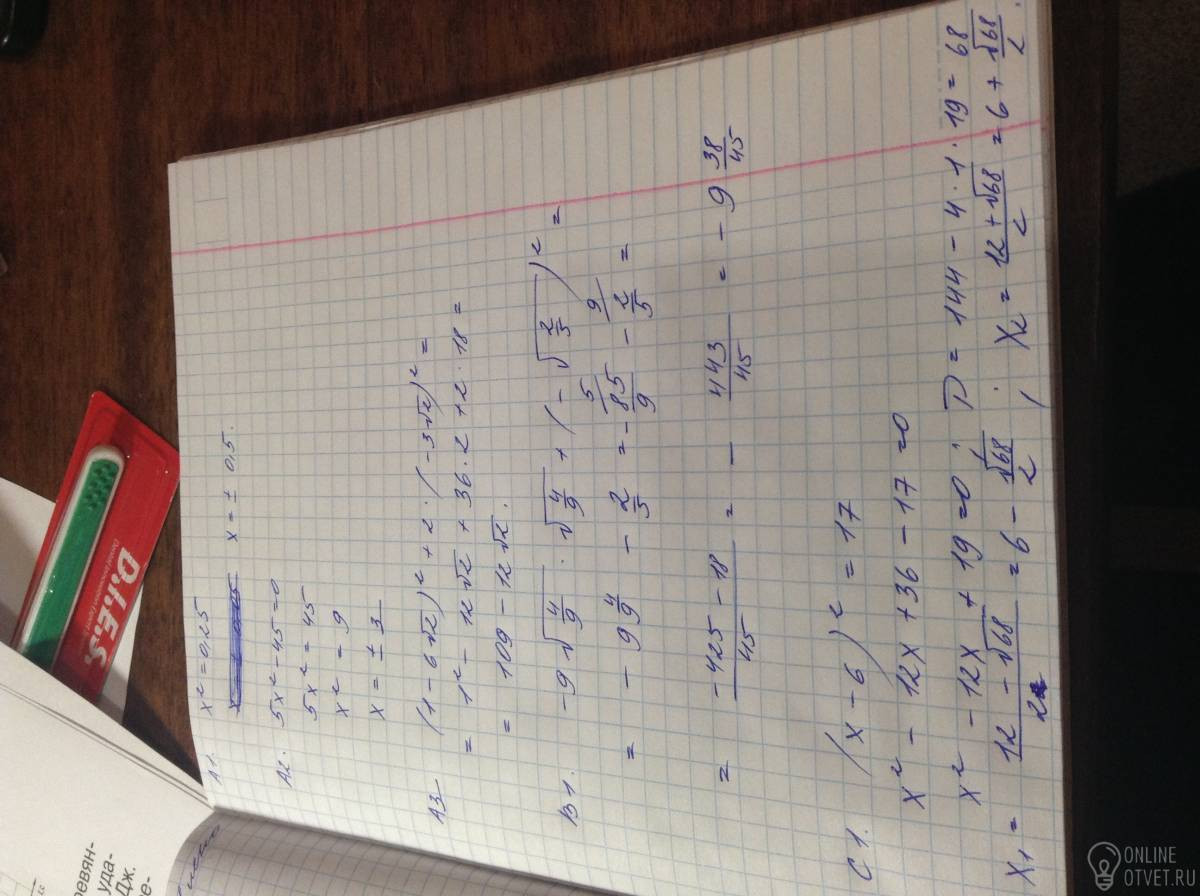 A1. x² = 0,25
x = ± 0,5.
A2. 5x² - 45 = 0
5x² = 45
x² = 9
x = ± 3
A3 (1 - 6√2)² + 2 · (-3√2)² =
= 1² - 12√2 + 36·2 + 2·18 =
= 109 - 12√2.
B1. -9√(4/9) · √(4/9) + (-√(2/3))² =
= -9 4/9 - 2/3 = - 85/9 - 2/5 =
5 9
= (-425 - 18)/45 = - 443/45 = - 9 38/45
C1. (x - 6)² = 17
x² - 12x + 36 - 17 = 0
x² - 12x + 19 = 0; D = 144 - 4·1·19 = 68
x₁ = (12 - √68)/2 = 6 - √68/2; x₂ = (12 + √68)/2 = 6 + √68/2.
D.I.E.S.
ревян-
уда-
Дж.
е-
ONLINE
OTVET.RU